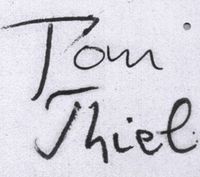 Tom
Thiel